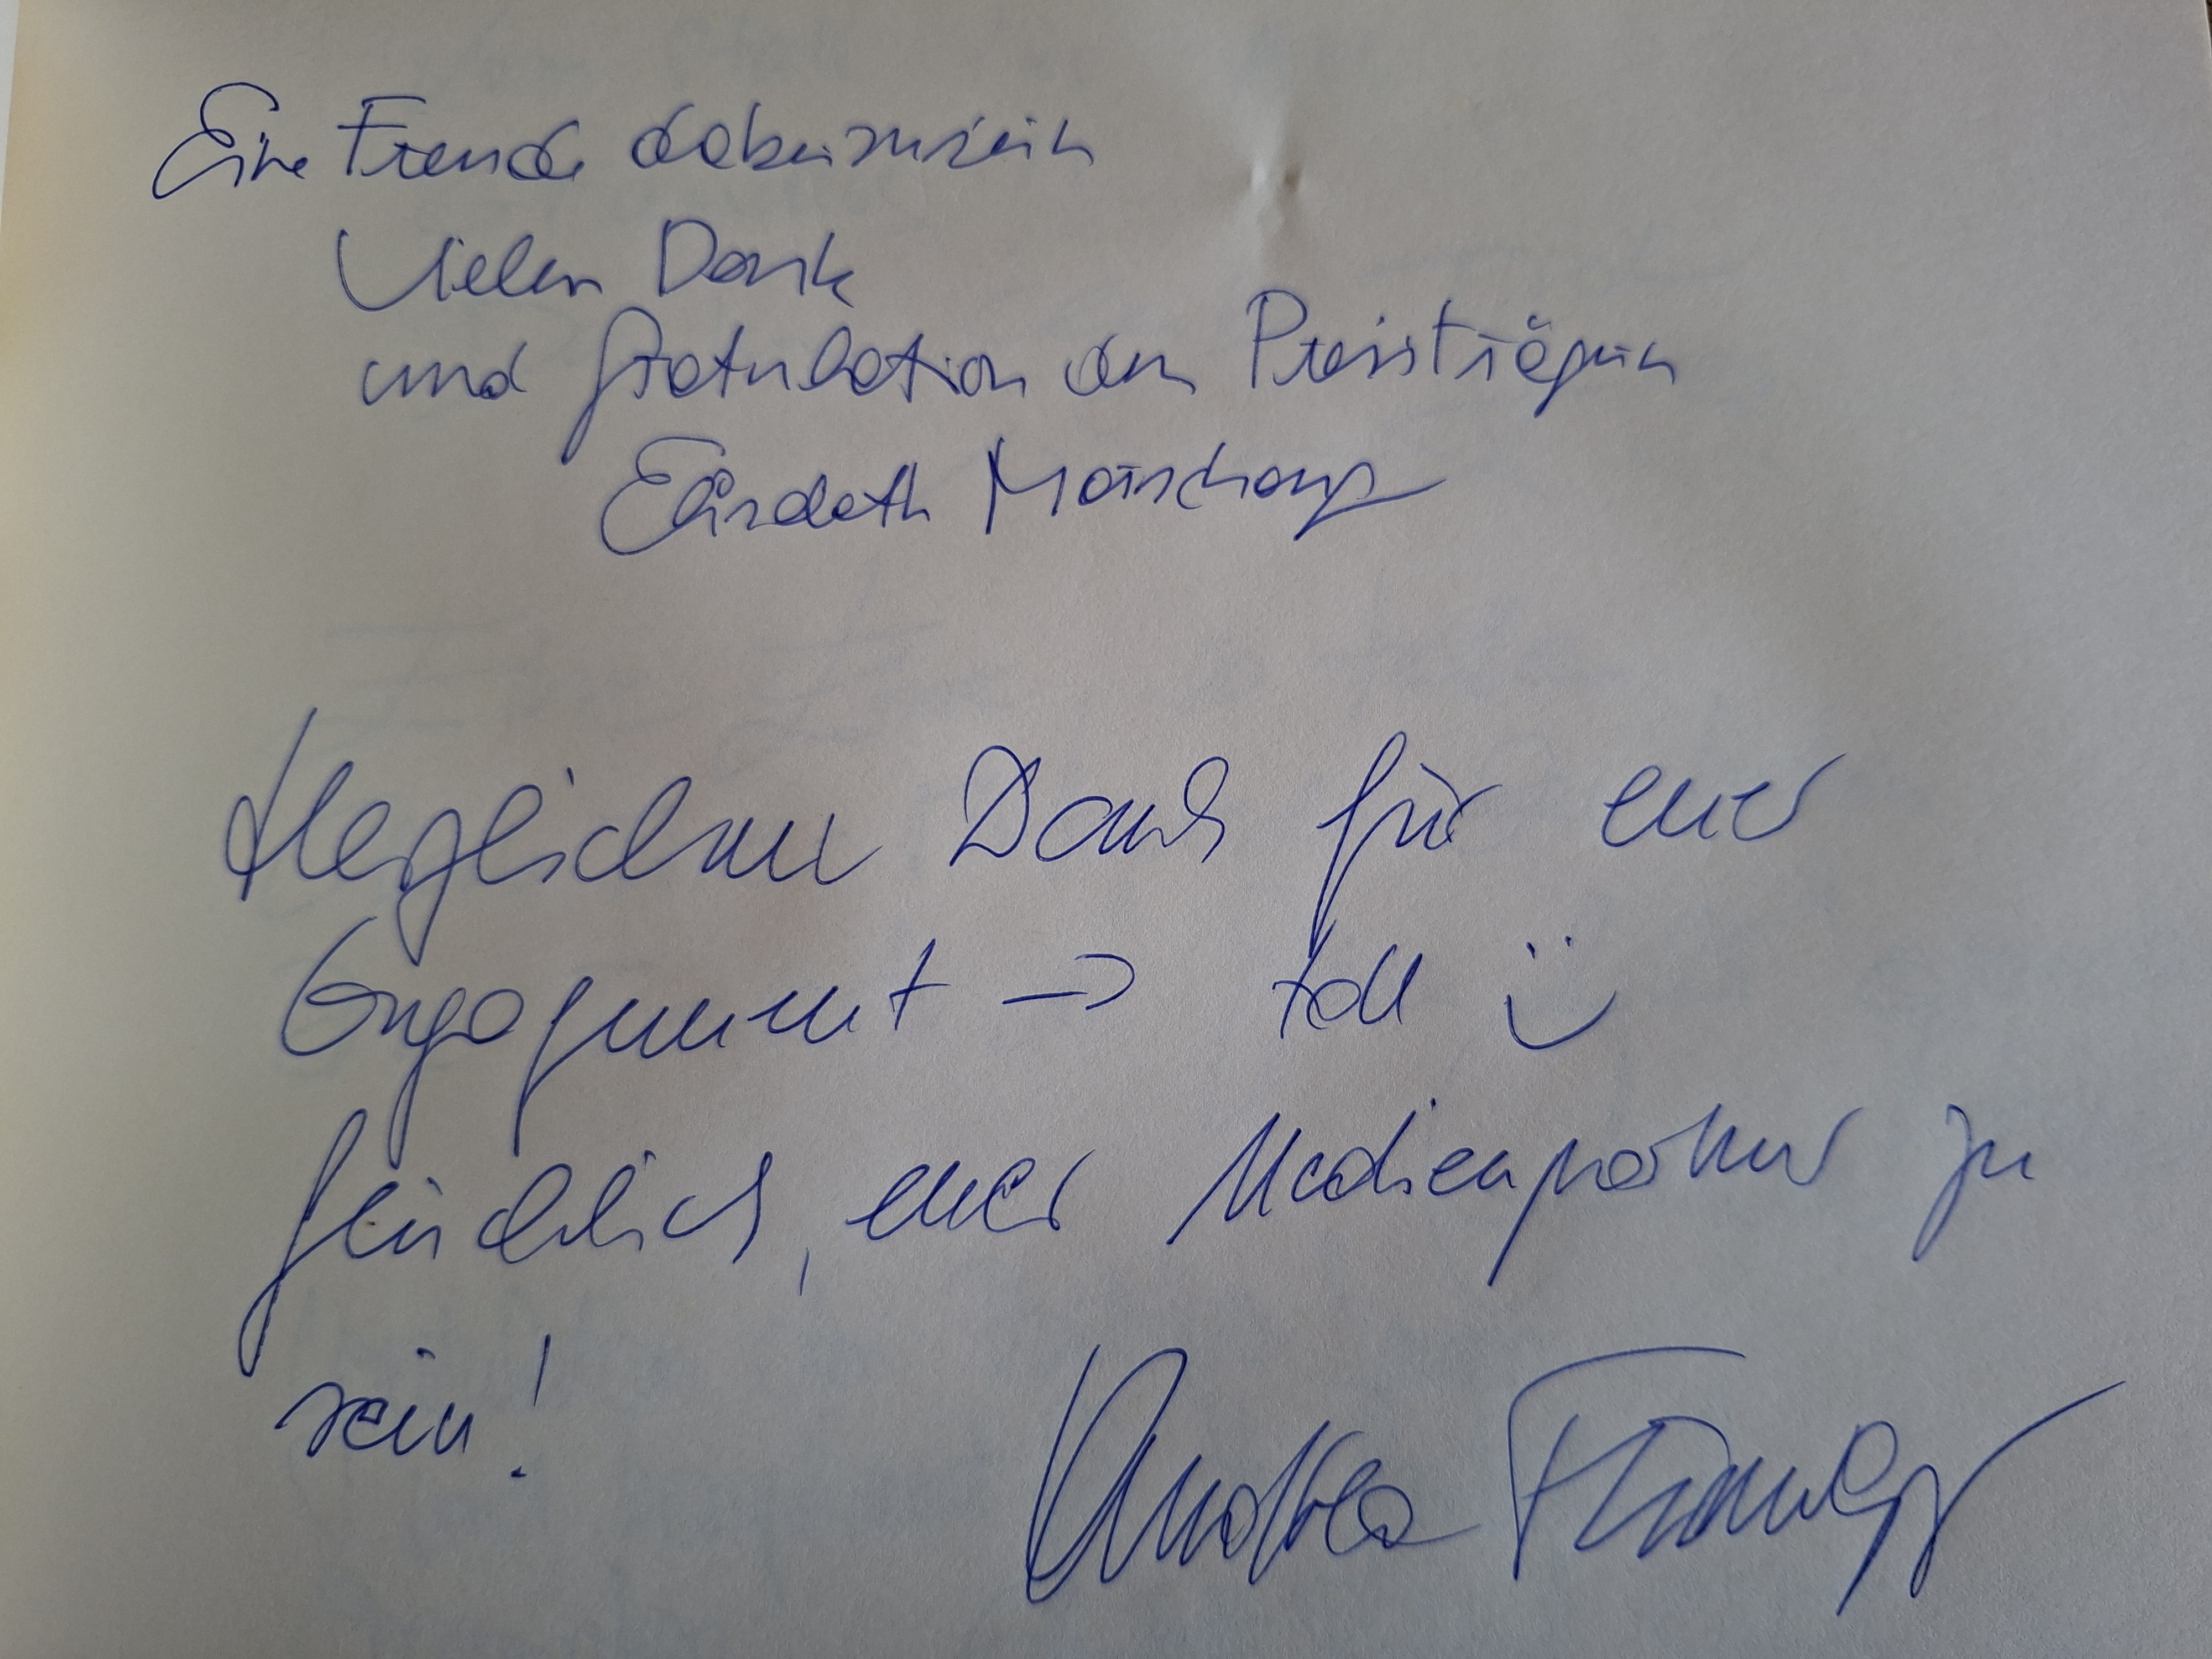 Eine Freude dabeizusein
Vielen Dank
und Gratulation den Preisträgern
Elisabeth
Herzlichen Dank für euer
Engagement → toll ü
glücklich, euer Medienpartner zu
sein!
Andrea